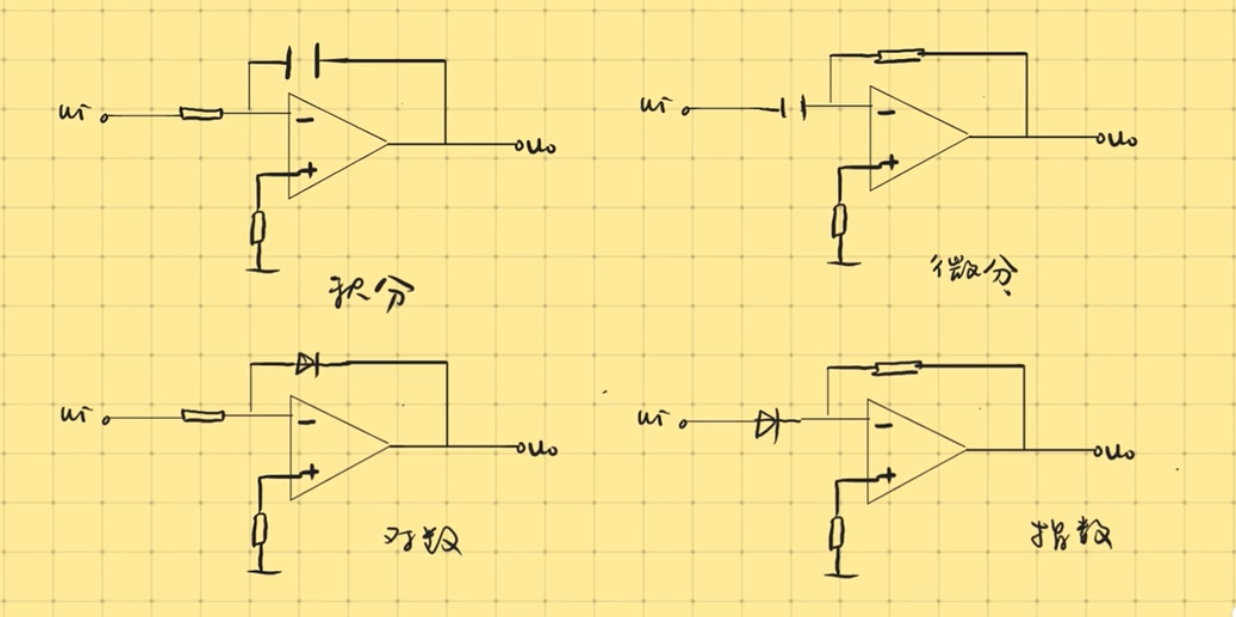 ui
-
+
uo
积分
ui
-
+
uo
微分
ui
-
+
uo
对数
ui
-
+
uo
指数